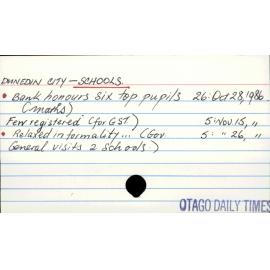 DUNEDIN CITY — SCHOOLS.
• Bank honours six top pupils 26: Oct 28, 1986
(maths)
Few registered (for GST) 5: Nov 15, "
• Relaxed informality... (Gov 5: " 26, "
General visits 2 schools.)
OTAGO DAILY TIMES